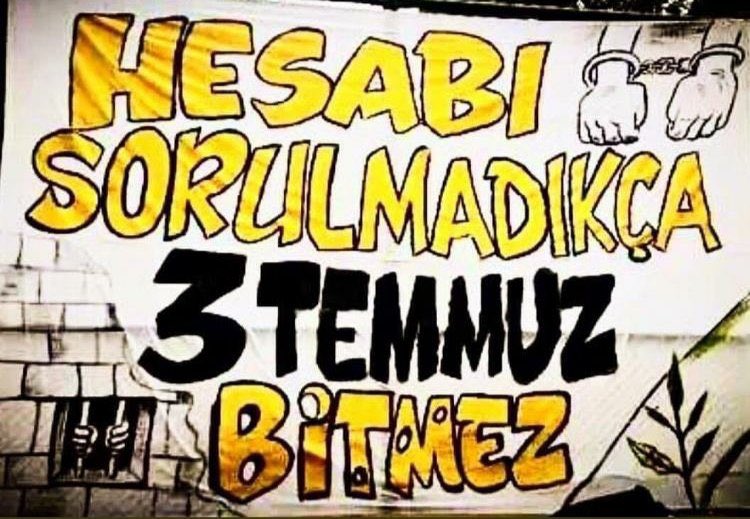 HESABI
SORULMADIKÇA
3 TEMMUZ
BİTMEZ